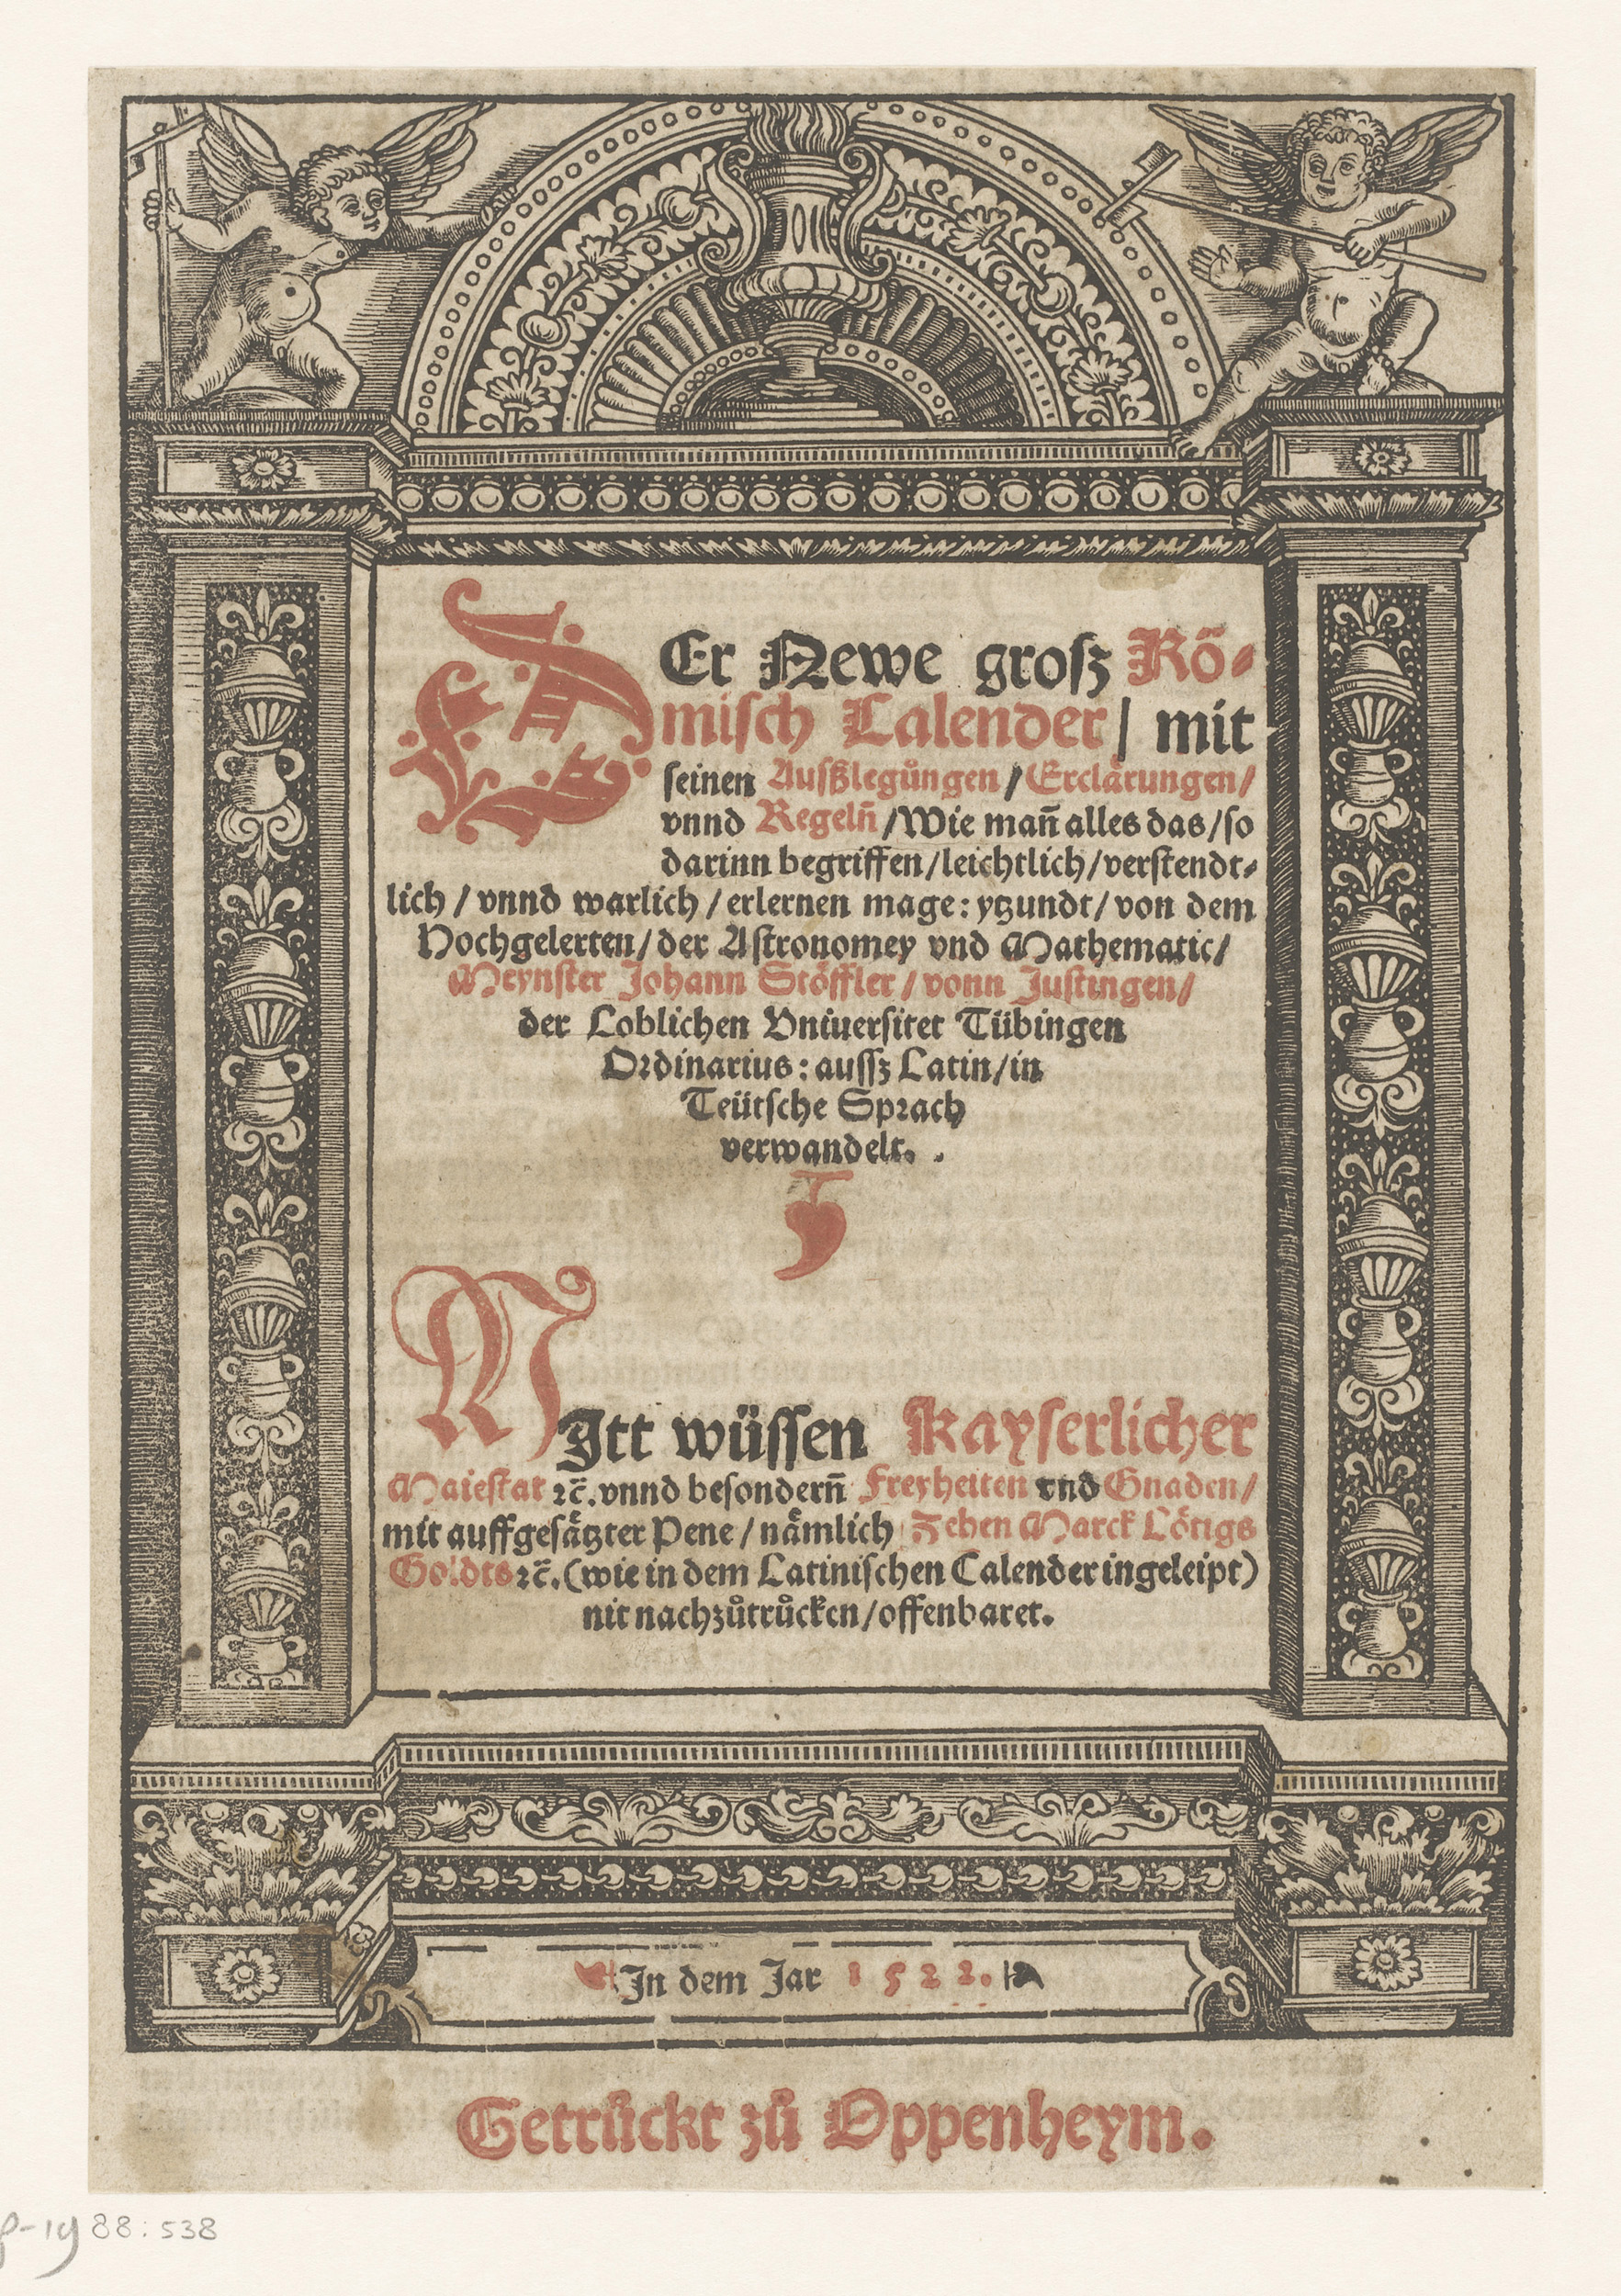 DEr Newe groſz Rö⸗
miſch Calender / mit
ſeinen Auſßlegůngen / Erclärungen /
vnnd Regeln̄ / Wie man̄ alles das / ſo
darinn begriffen / leichtlich / verſtendt⸗
lich / vnnd warlich / erlernen mage: ytzundt / von dem
Hochgelerten / der Aſtronomey vnd Mathematic /
Meynſter Johann Stöffler / vonn Juſtingen /
der Loblichen Vniuerſitet Tübingen
Ordinarius: auſſz Latin / in
Teütſche Sprach
verwandelt.
MItt wüſſen Kayſerlicher
Maieſtat ꝛc̄. vnnd beſondern̄ Freyheiten vnd Gnaden /
mit auffgeſätzter Pene / nämlich Zehen Marck Lötigs
Goldts ꝛc̄. (wie in dem Latiniſchen Calender ingeleipt)
nit nachzůtrůcken / offenbaret.
In dem Jar 1522.
Getrůckt zů Oppenheym.
p-1988:538